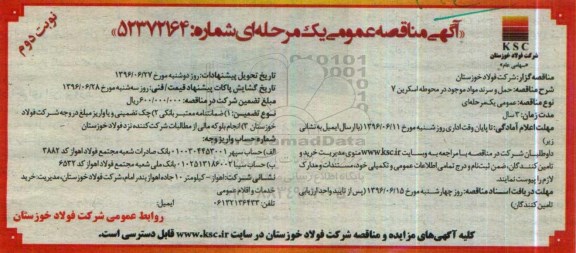 نوبت دوم
«آگهی مناقصه عمومی یک مرحله‌ای شماره: ۵۲۳۷۲۱۶۴»
KSC
شرکت فولاد خوزستان
«سهامی عام»
مناقصه گزار: شرکت فولاد خوزستان
شرح مناقصه: حمل و سرند مواد موجود در محوطه اسکرین ۷
نوع مناقصه: عمومی یک مرحله‌ای
مدت زمان: ۲ سال
مهلت اعلام آمادگی: تا پایان وقت اداری روز شنبه مورخ ۱۳۹۶/۰۶/۱۱ (با ارسال ایمیل به نشانی زیر)
داوطلبان شرکت در مناقصه با مراجعه به وبسایت www.ksc.ir منوی مدیریت خرید و
تامین کنندگان، ضمن ثبت‌نام و درج تمامی اطلاعات عمومی و تکمیلی خود، مستندات و مدارک
لازم را پیوست نمایند.
مهلت دریافت اسناد مناقصه: روز چهارشنبه مورخ ۱۳۹۶/۰۶/۱۵ (پس از تائید واحد ارزیابی
تامین کنندگان)
تاریخ تحویل پیشنهادات: روز دوشنبه مورخ ۱۳۹۶/۰۶/۲۷
تاریخ گشایش پاکات پیشنهاد قیمت / فنی: روز سه‌شنبه مورخ ۱۳۹۶/۰۶/۲۸
مبلغ تضمین شرکت در مناقصه: ۶۰۰/۰۰۰/۰۰۰ ریال
نوع تضمین: ۱) ضمانتنامه معتبر بانکی ۲) چک تضمینی و یا واریز مبلغ در وجه شرکت فولاد
خوزستان ۳) انجام بلوکه مالی از مطالبات شرکت کننده نزد فولاد خوزستان
شماره حساب واریز وجه:
الف) حساب سپهر ۰۱۰۰۳۰۴۴۵۳۰۰۱ بانک صادرات شعبه مجتمع فولاد اهواز کد ۳۸۸۲
ب) حساب سیبا ۰۱۰۲۵۱۳۱۸۶۰۰۲ بانک ملی شعبه مجتمع فولاد اهواز کد ۶۵۳۲
نشانی شرکت: اهواز - کیلومتر ۱۰ جاده اهواز بندر امام، شرکت فولاد خوزستان، مدیریت خرید
خدمات و اقلام عمومی
تلفن: ۰۶۱۳۲۱۳۶۴۳۳ ایمیل:
روابط عمومی شرکت فولاد خوزستان
کلیه آگهی‌های مزایده و مناقصه شرکت فولاد خوزستان در سایت www.ksc.ir قابل دسترسی است.